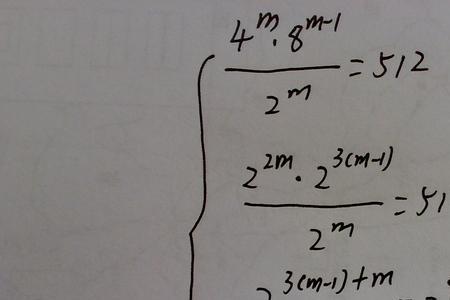 4^m · 8^{m-1} / 2^m = 512
2^{2m} · 2^{3(m-1)} / 2^m = 51
2^{3(m-1)+m}